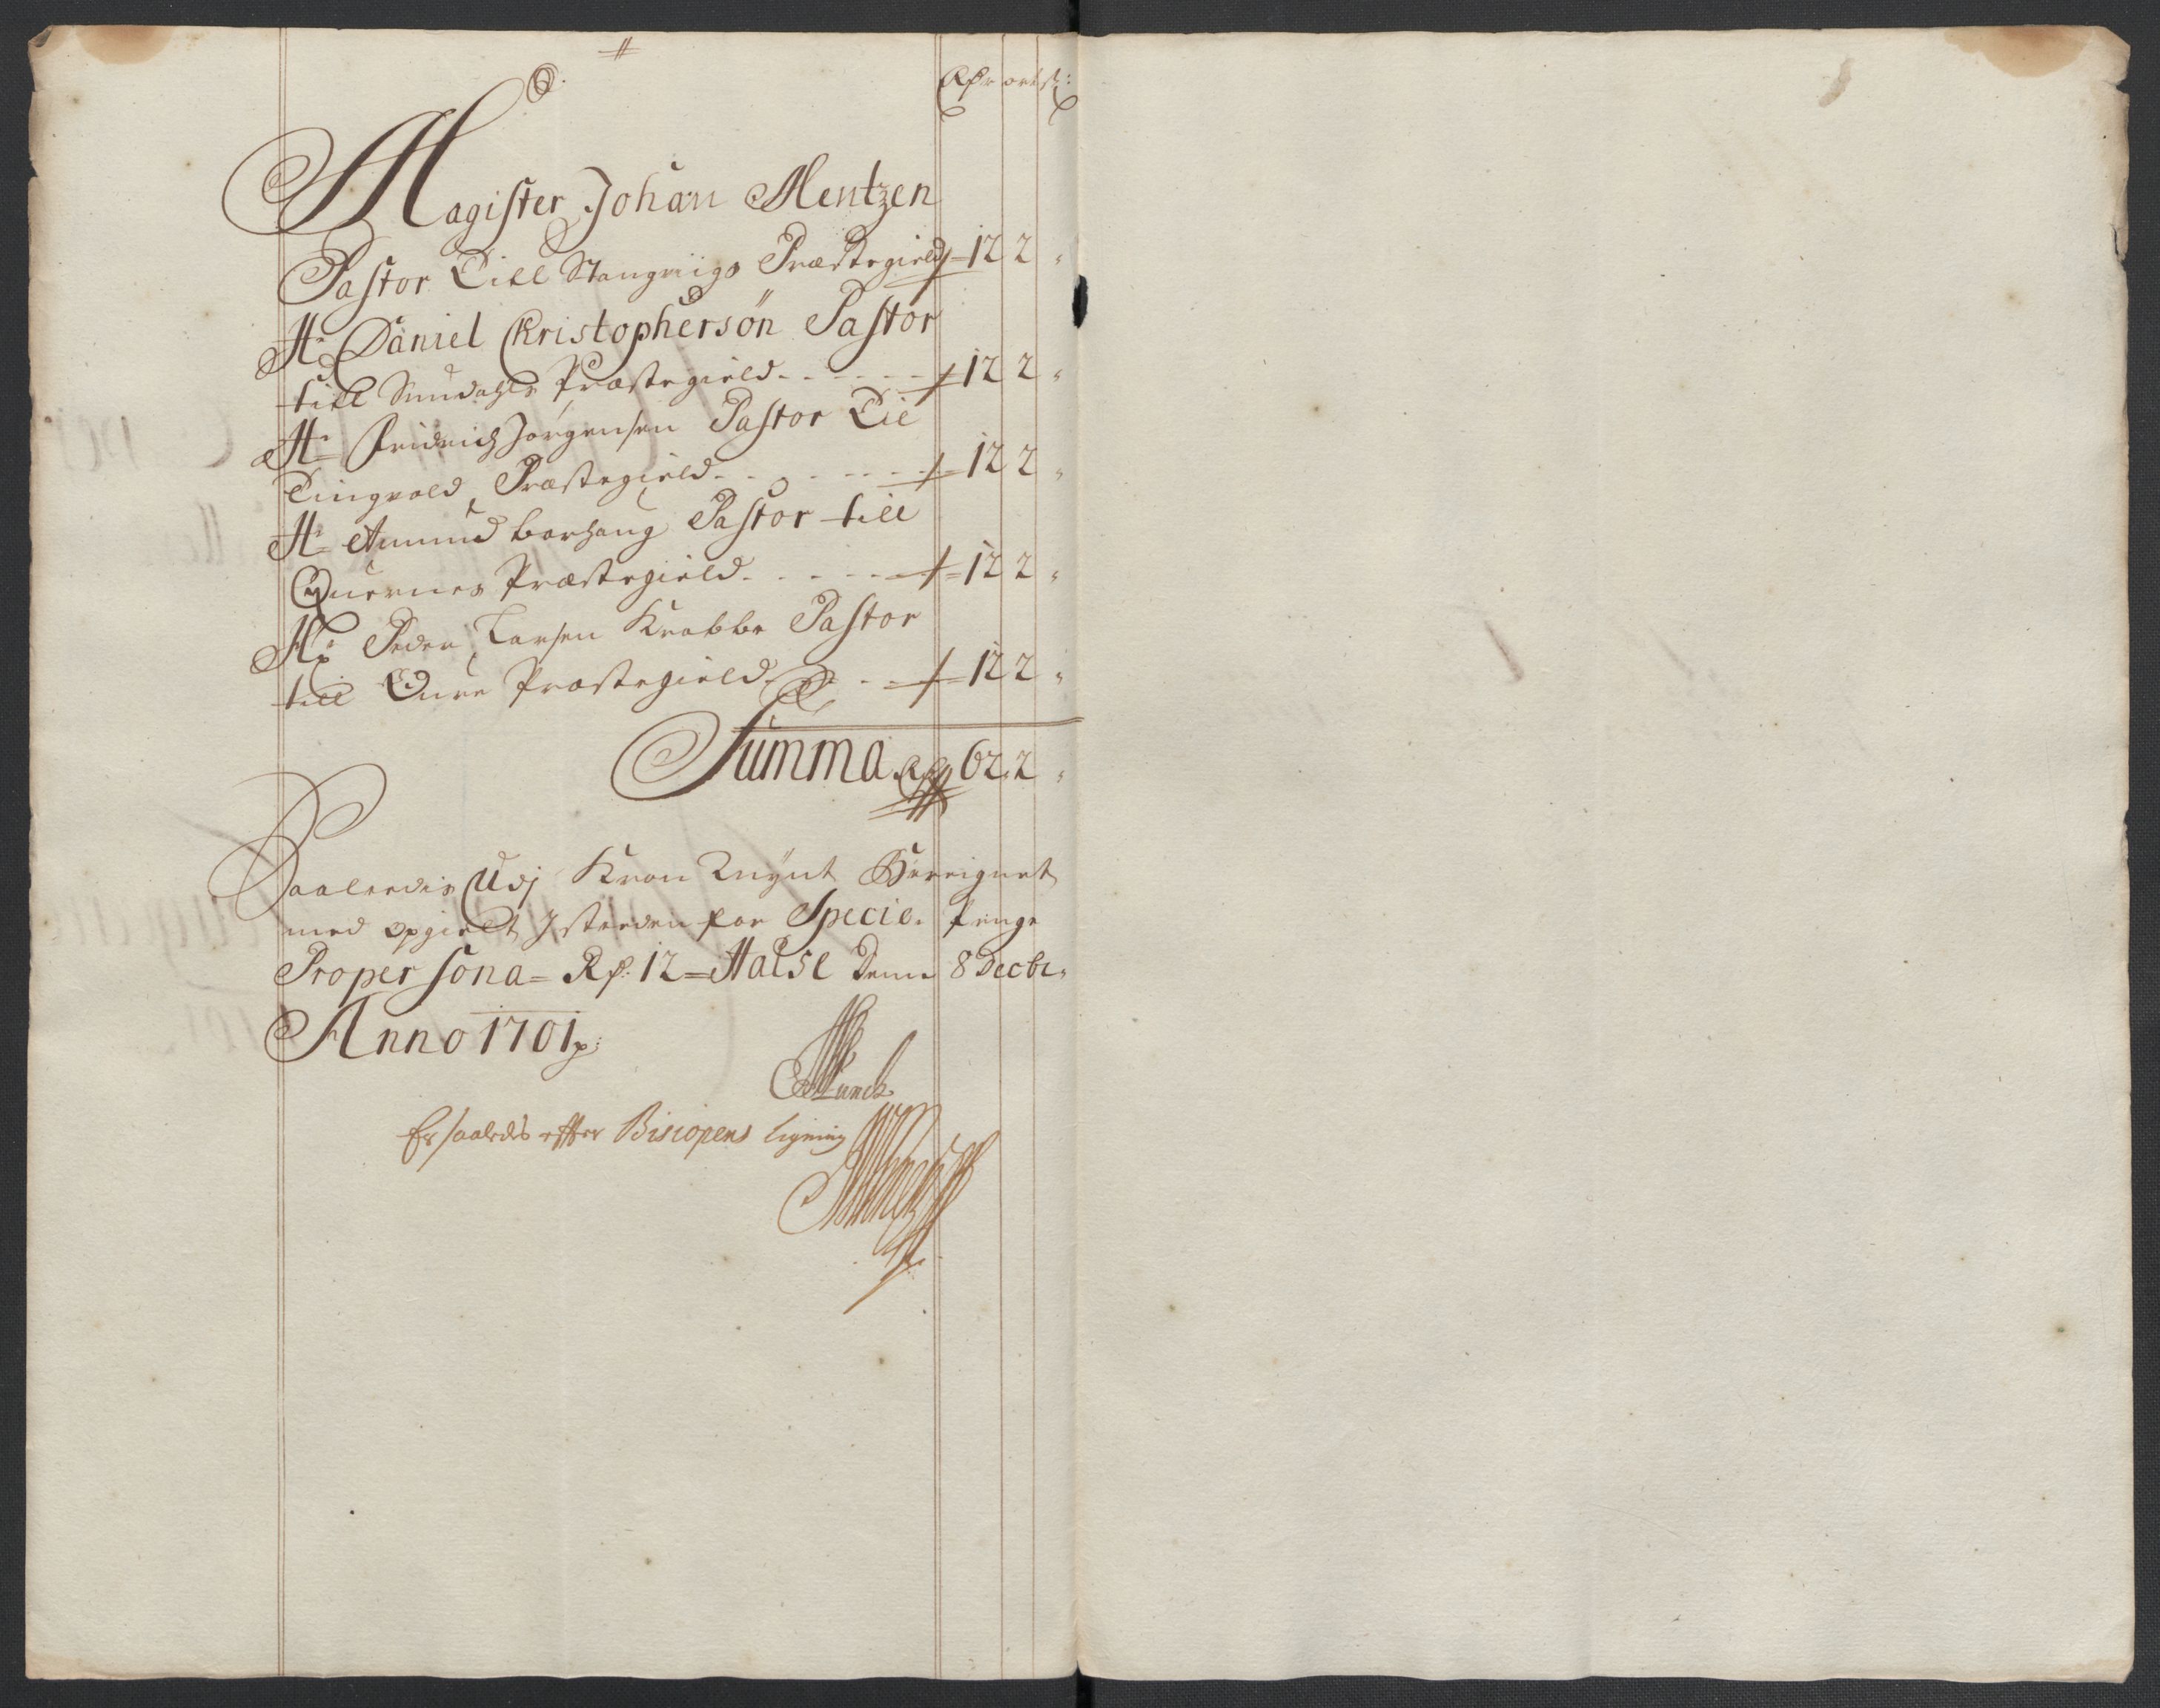 Rdr ort ß:
Magister Johan Mentzen
Pastor Till Stangviigs Præstegield 12 2 "
Hr Daniel Christophersøn Pastor
till Sundahls Præstegield - - - - - 12 2 "
Hr Fridrich Jørgensen Pastor Til
Tingvold Præstegield - - - - - 12 2 "
Hr Amund barhaug Pastor till
Qvernes Præstegield - - - - - 12 2 "
Hr Peder Larsen Krabbe Pastor
till Edure Præstegield - - 12 2 "
Summa Rdr 62. 2 "
Saaledis Udj Kron Mynt Bereignet
med opgield J steden for Specie Penge
Proper sona = Rdr: 12 = Halse Denn 8 Decbr.
Anno 1701
Munch
Er saaledis effter Biscopens ligning